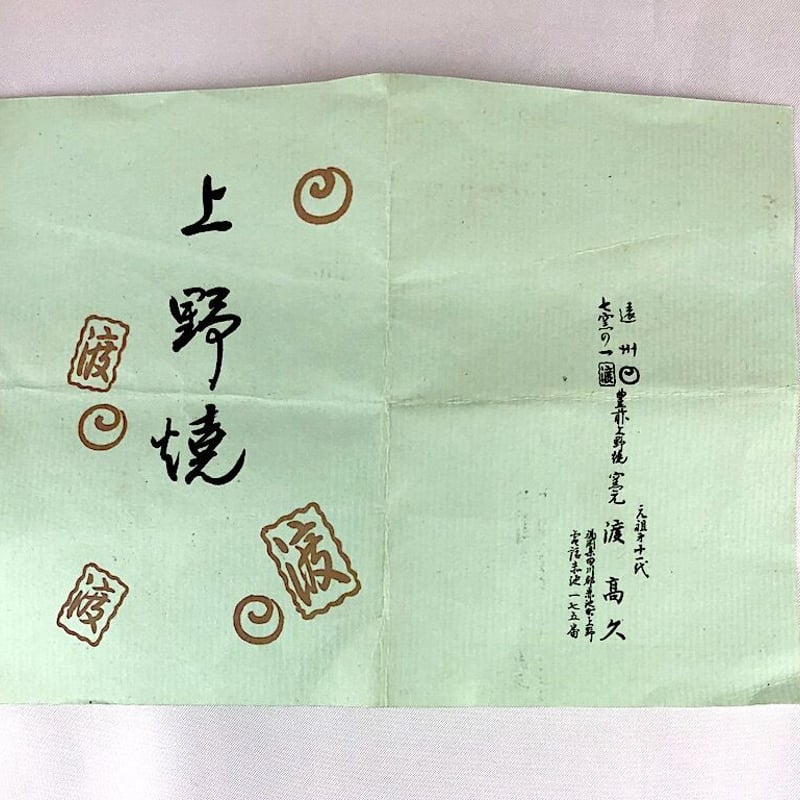 遠州
七窯の一
渡
豊前上野焼 窯元
元祖第十一代
渡 高久
福岡県田川郡赤池町上野
電話赤池一七五番
上野燒
渡
渡
渡